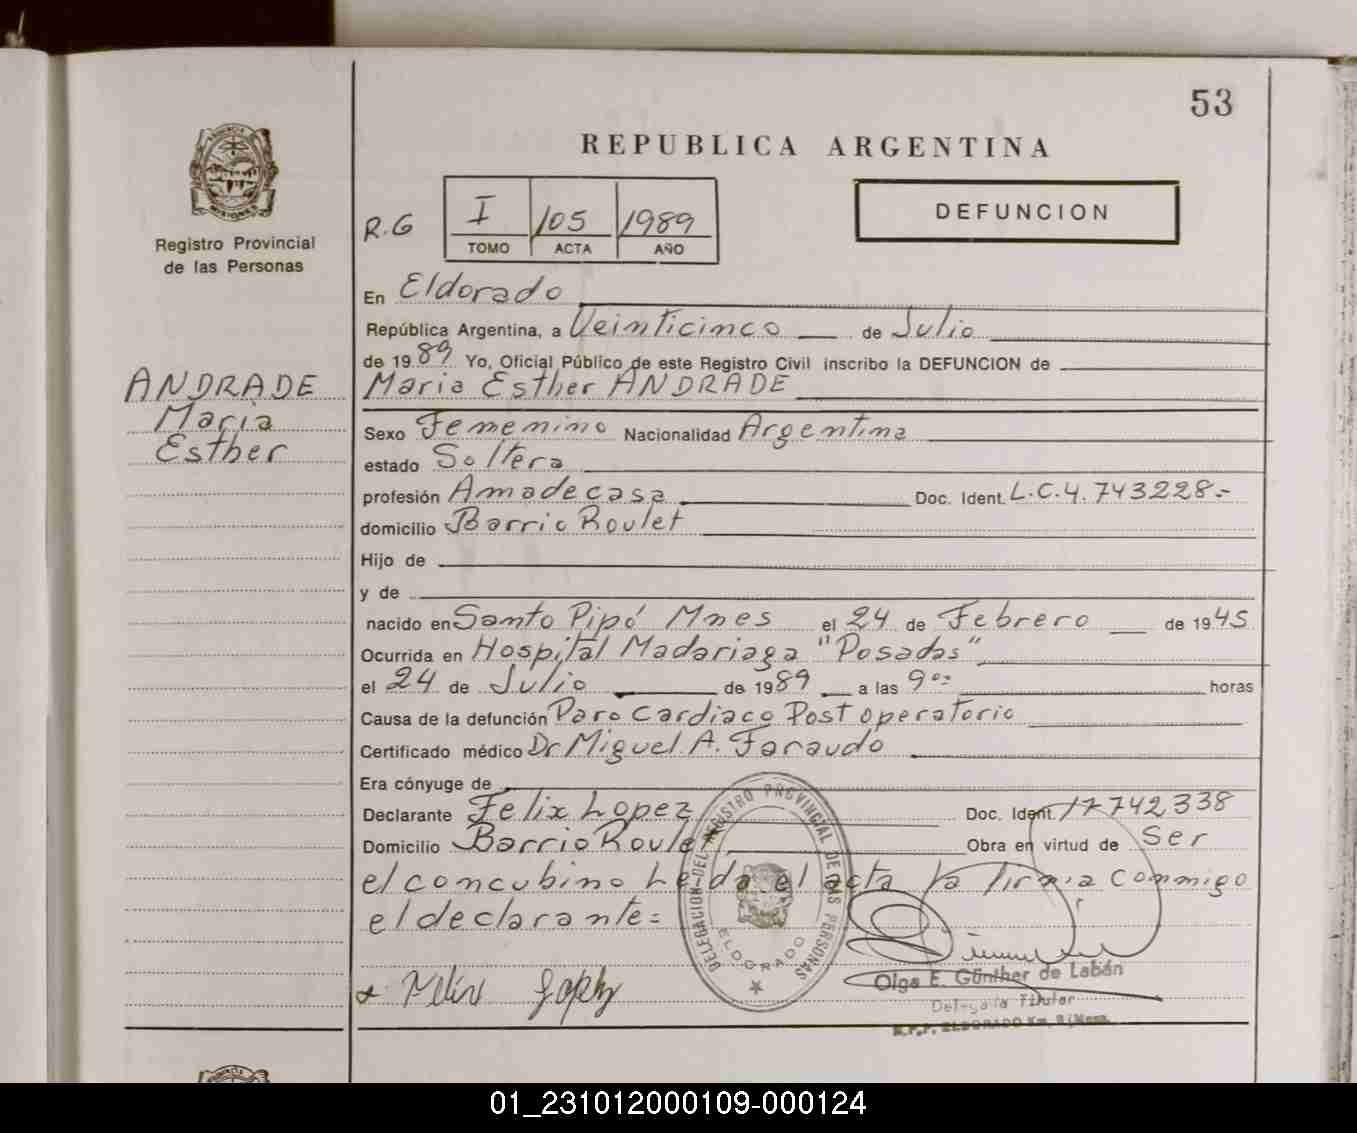 53
REPUBLICA ARGENTINA
PROVINCIA DE MISIONES
Registro Provincial
de las Personas
R.G I 105 1989
TOMO ACTA AÑO
DEFUNCION
En Eldorado
República Argentina, a Veinticinco de Julio
de 1989 Yo, Oficial Público de este Registro Civil inscribo la DEFUNCION de
Maria Esther ANDRADE
ANDRADE
Maria
Esther
Sexo Femenino Nacionalidad Argentina
estado Soltera
profesión Amadecasa Doc. Ident. L.C.4.743228.-
domicilio Barrio Roulet
Hijo de
y de
nacido en Santo Pipó Mnes el 24 de Febrero de 1945
Ocurrida en Hospital Madariaga "Posadas"
el 24 de Julio de 1989 a las 9⁰⁰ horas
Causa de la defunción Paro Cardiaco Post operatorio
Certificado médico Dr Miguel A. Faraudo
Era cónyuge de
Declarante Felix Lopez Doc. Ident. 17742338
Domicilio Barrio Roulet Obra en virtud de Ser
el concubino Leida el acta la firma conmigo
el declarante=
DELEGACION DEL REGISTRO PROVINCIAL DE LAS PERSONAS
ELDORADO
Felix Lopez
Olga E. Günther de Labán
Delegada Titular
R.P.P. ELDORADO Km. 9 (Mnes.
01_231012000109-000124